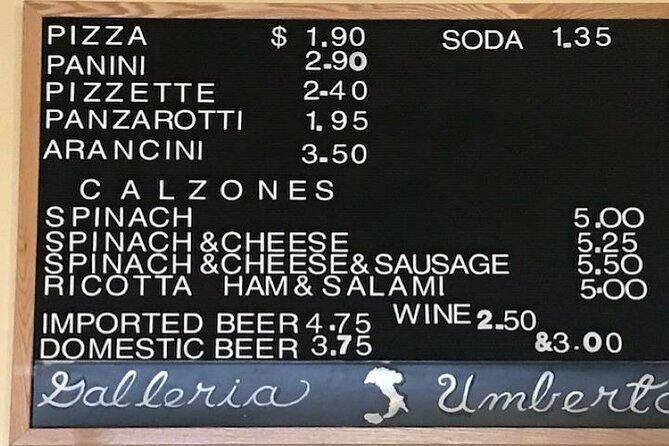 PIZZA $ 1.90 SODA 1.35
PANINI 2.90
PIZZETTE 2.40
PANZAROTTI 1.95
ARANCINI 3.50
CALZONES
SPINACH 5.00
SPINACH & CHEESE 5.25
SPINACH & CHEESE & SAUSAGE 5.50
RICOTTA HAM & SALAMI 5.00
IMPORTED BEER 4.75 WINE 2.50
DOMESTIC BEER 3.75 &3.00
Galleria Umberto